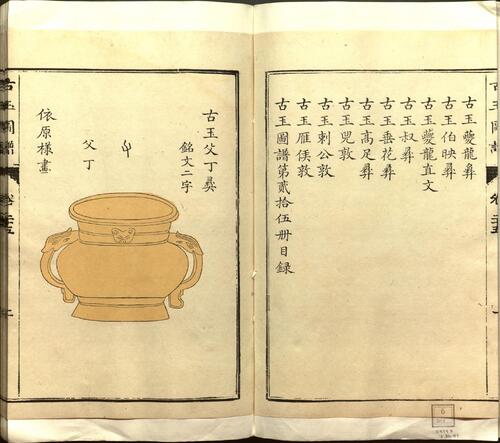 古玉夔龍彝
古玉伯映彝
古玉夔龍直文
古玉叔彝
古玉垂花彝
古玉高足彝
古玉兕敦
古玉刺公敦
古玉雁侯敦
古玉圖譜第貳拾伍冊目録
古玉父丁彝
銘文二字
父丁
依原樣畫
古玉圖譜
6